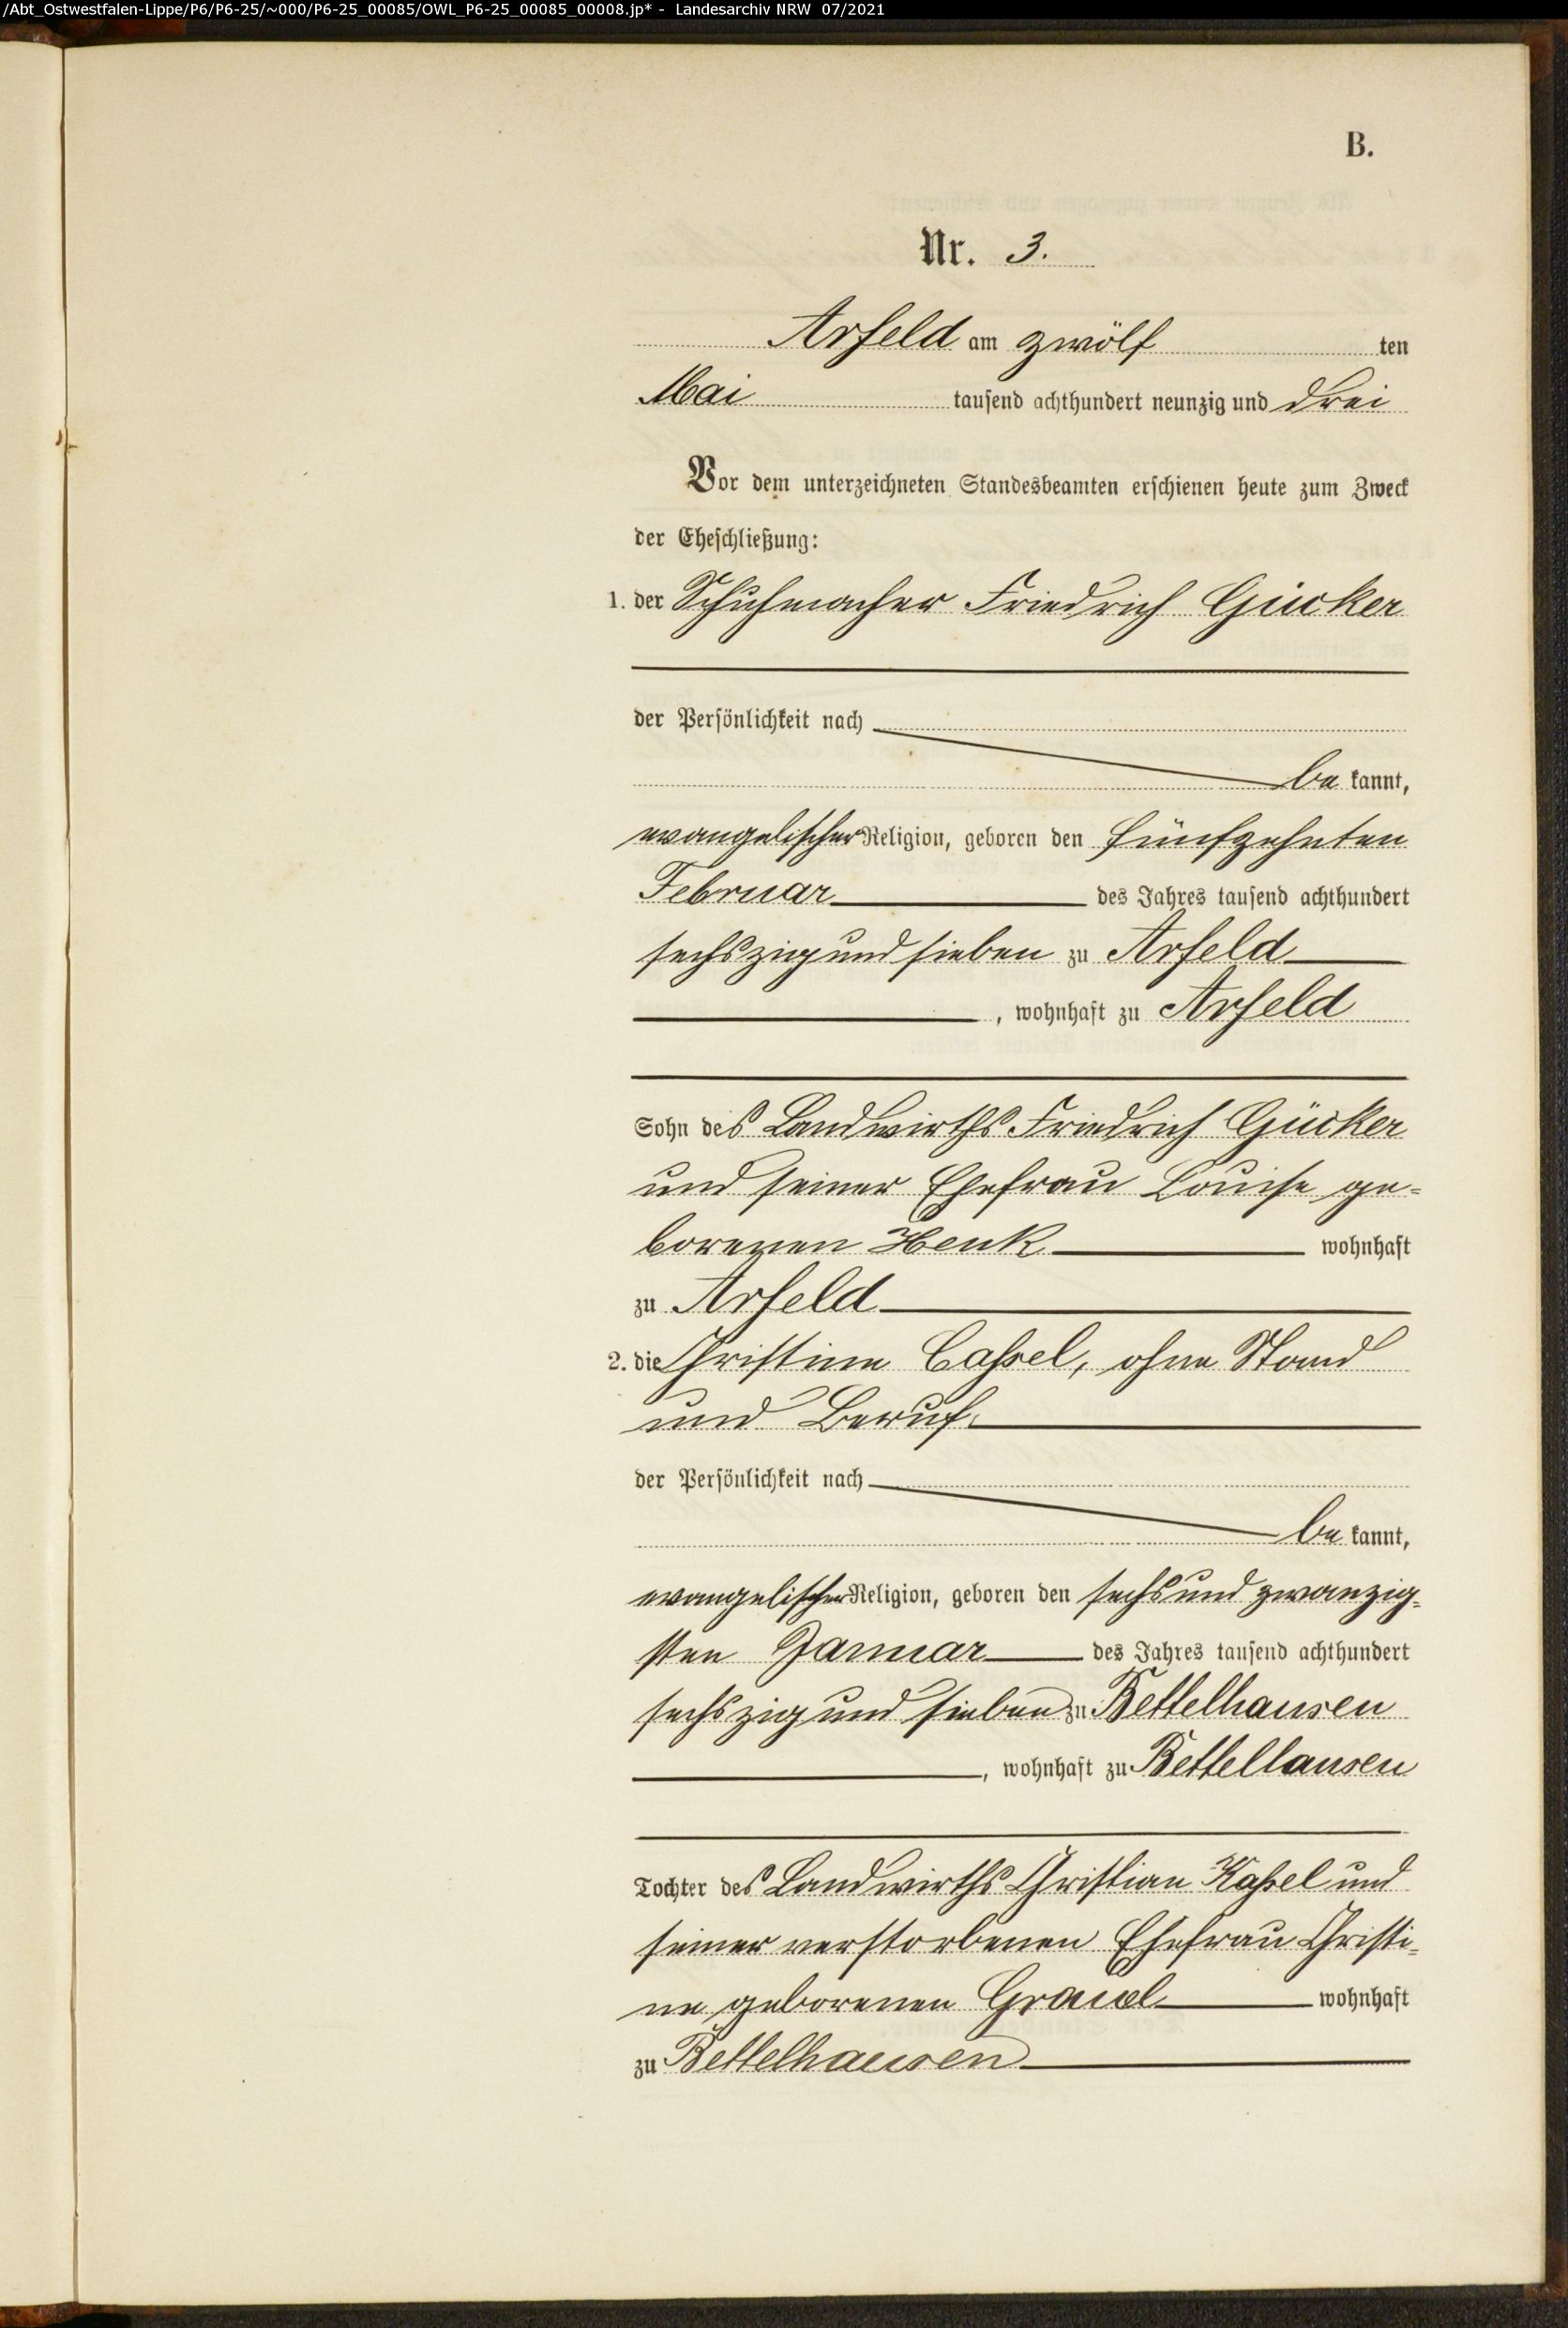 /Abt_Ostwestfalen-Lippe/P6/P6-25/~000/P6-25_00085/OWL_P6-25_00085_00008.jp* - Landesarchiv NRW 07/2021
B.
Nr. 3.
Arfeld am zwölf ten
Mai tausend achthundert neunzig und drei
Vor dem unterzeichneten Standesbeamten erschienen heute zum Zweck
der Eheschließung:
1. der Schuhmacher Friedrich Gücker
der Persönlichkeit nach
be kannt,
evangelischer Religion, geboren den fünfzehnten
Februar des Jahres tausend achthundert
sechszig und sieben zu Arfeld
, wohnhaft zu Arfeld
Sohn des Landwirths Friedrich Gücker
und seiner Ehefrau Louise ge-
borenen Henk wohnhaft
zu Arfeld
2. die Christine Caßel, ohne Stand
und Beruf
der Persönlichkeit nach
be kannt,
evangelischer Religion, geboren den sechs und zwanzig-
sten Januar des Jahres tausend achthundert
sechszig und sieben zu Bettelhausen
, wohnhaft zu Bettelhausen
Tochter des Landwirths Christian Kaßel und
seiner verstorbenen Ehefrau Christi-
ne geborenen wohnhaft
zu Bettelhausen